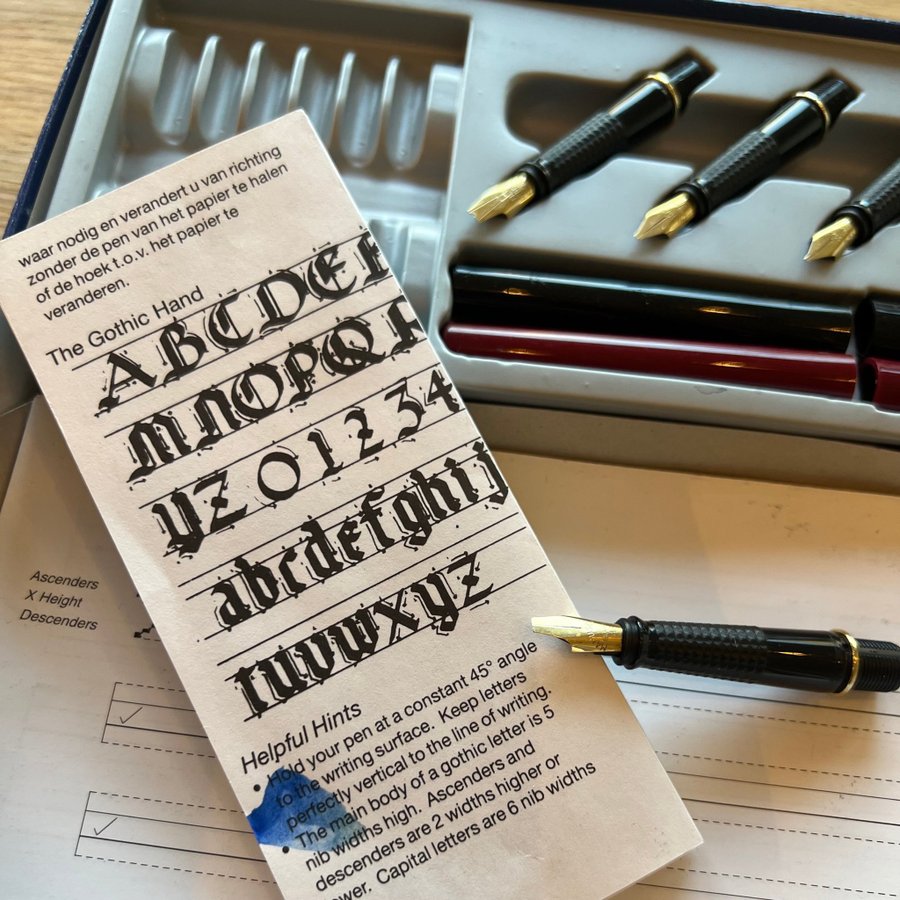 waar nodig en verandert u van richting
zonder de pen van het papier te halen
of de hoek t.o.v. het papier te
veranderen.
The Gothic Hand
ABCDEF
MNOPQR
YZ01234
abcdefghij
tuvwxyz
Helpful Hints
• Hold your pen at a constant 45° angle
to the writing surface. Keep letters
perfectly vertical to the line of writing.
• The main body of a gothic letter is 5
nib widths high. Ascenders and
descenders are 2 widths higher or
lower. Capital letters are 6 nib widths
Ascenders
X Height
Descenders